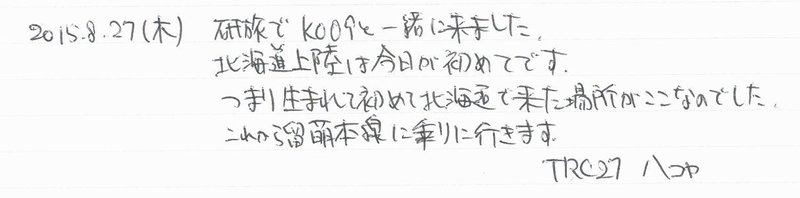 2015.8.27(木) 研旅でK009と一緒に来ました。
北海道上陸は今日が初めてです。
つまり生まれて初めて北海道で来た場所がここなのでした。
これから留萌本線に乗りに行きます。
TRC27 ハコヤ